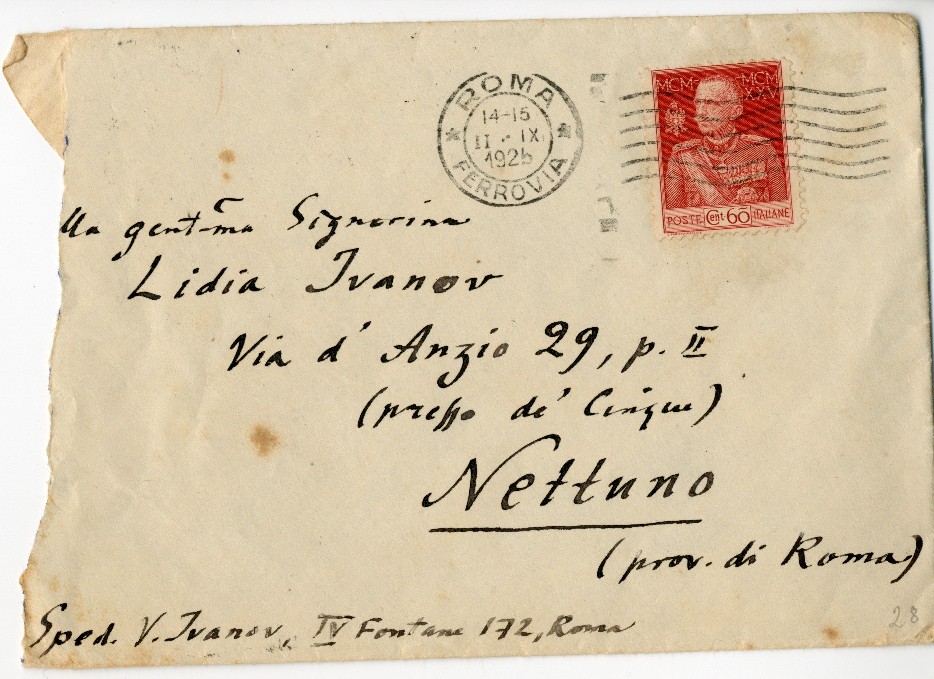 ROMA
14-15
11·IX
1925
FERROVIA
MCM MCM
XXV
POSTE Cent. 60 ITALIANE
Alla gent-ma Signorina
Lidia Ivanov
Via d' Anzio 29, p. II
(presso de' Cinque)
Nettuno
(prov. di Roma)
Sped. V. Ivanov, IV Fontane 172, Roma
28